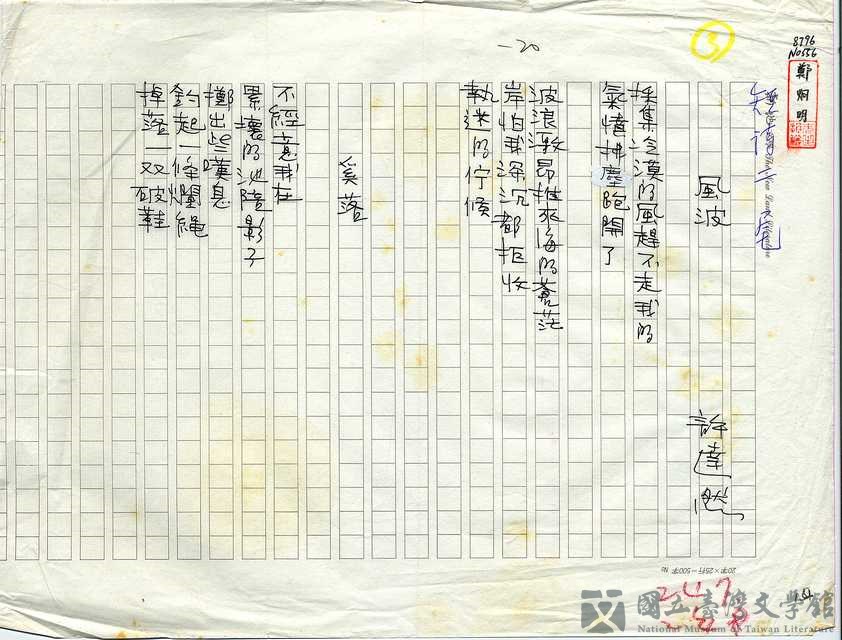 8796
N0556
鄭烱明
③
-20
風波
許達然
採集冷漠的風趕不走我的
氣憤拂塵跑開了
波浪激昂推來海的蒼茫
岸怕我深沉都拒收
執迷的佇候
奚落
不經意我在
累壞的沈陰影子
擲出些嘆息
釣起一條爛繩
掉落一双破鞋
20字×25行=500字 No
國立臺灣文學館
National Museum of Taiwan Literature